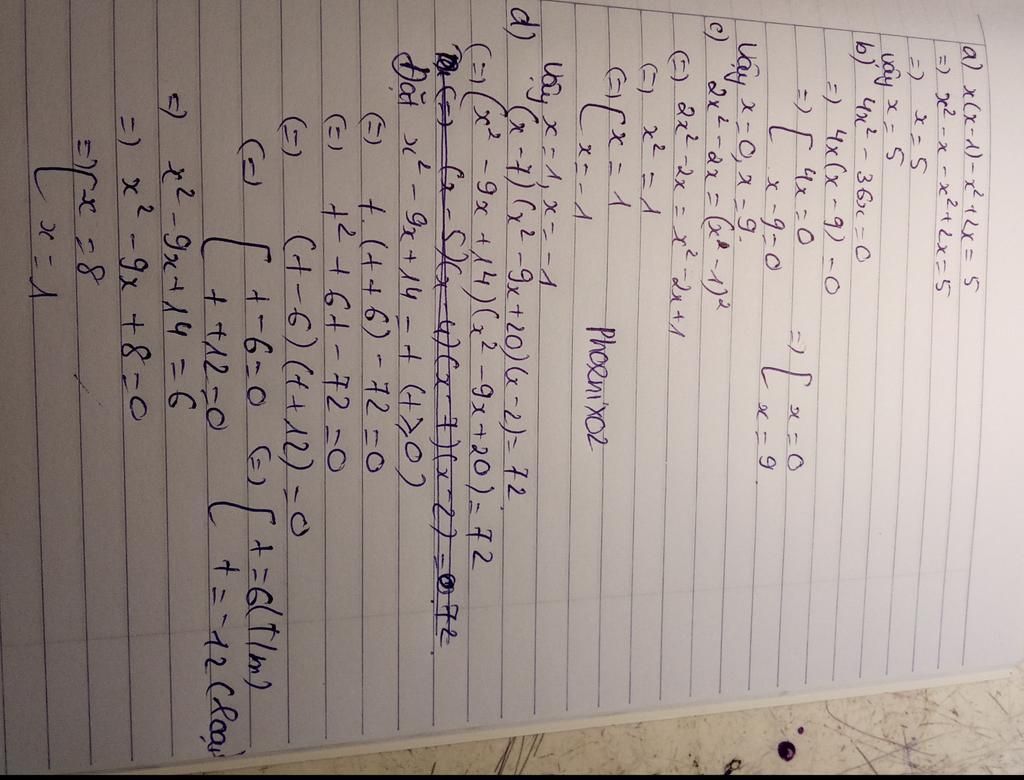 a) x(x-1)-x²+2x = 5
=> x²-x-x²+2x=5
=> x=5
vậy x=5
b) 4x²-36x=0
=> 4x(x-9)=0
=> [ 4x=0 => [ x=0
x-9=0 x=9
Vậy x=0, x=9.
c) 2x²-2x=(x-1)²
(=) 2x²-2x=x²-2x+1
(=) x²=1
(=) [ x=1
x=-1
PhoeniX02
Vậy x=1, x=-1
d) (x-7)(x²-9x+20)(x-2)=72
(=) (x²-9x+14)(x²-9x+20)=72
(=) (x-5)(x-4)(x-7)(x-2)=72
Đặt x²-9x+14=t (t⩾0)
(=) t(t+6)-72=0
(=) t²+6t-72=0
(=) (t-6)(t+12)=0
(=) [ t-6=0 (=) [ t=6(t/m)
t+12=0 t=-12(loại
=> x²-9x+14=6
=> x²-9x+8=0
=> [ x=8
x=1